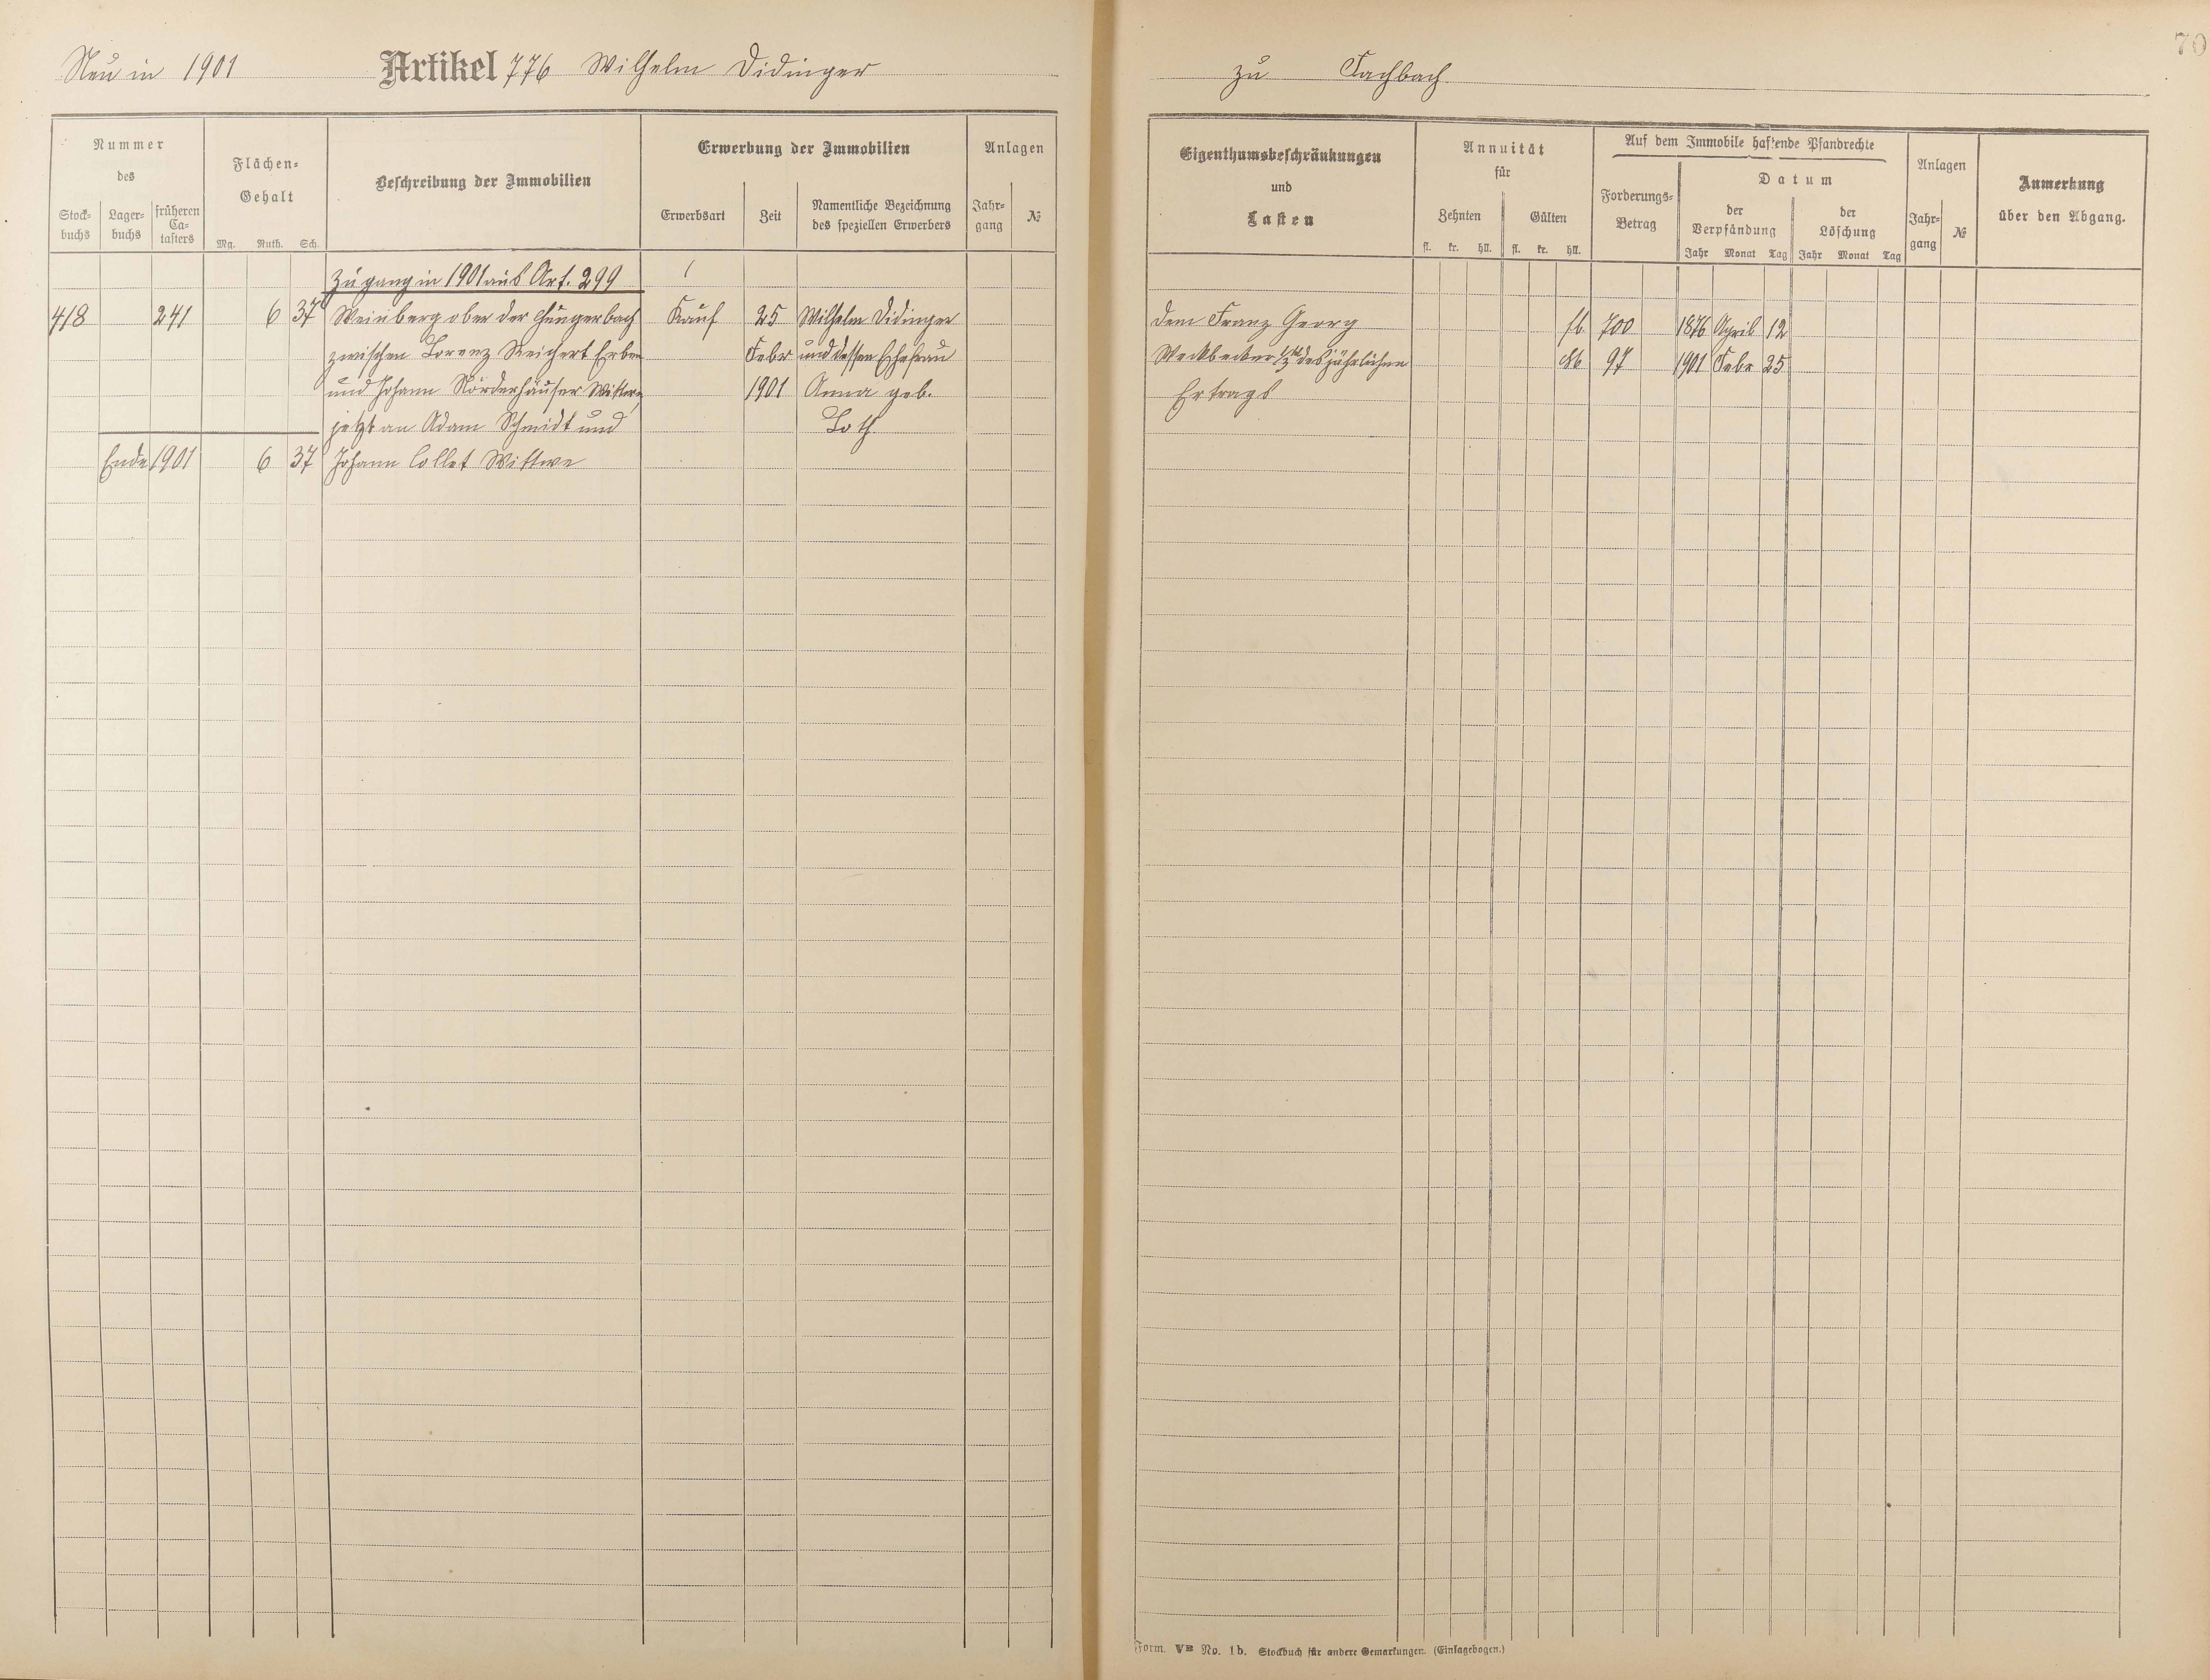 70
Neu in 1901 Artikel 776 Wilhelm Didinger
zu Fachbach
Nummer
des
Stock-
buchs
Lager-
buchs
früheren
Ca-
tasters
Flächen-
Gehalt
Mg. Ruth. Sch.
Beschreibung der Immobilien
Erwerbung der Immobilien
Erwerbsart
Zeit
Namentliche Bezeichnung
des speziellen Erwerbers
Anlagen
Jahr-
gang
№
Eigenthumsbeschränkungen
und
Lasten
Annuität
für
Zehnten
Gülten
fl. kr. hll. fl. kr. hll.
Auf dem Immobile haftende Pfandrechte
Forderungs-
Betrag
Datum
der
Verpfändung
Jahr Monat Tag
der
Löschung
Jahr Monat Tag
Anlagen
Jahr-
gang
№
Anmerkung
über den Abgang.
Zugang in 1901 aus Art. 299
418 241 6 37 Weinberg ober der Hungerbach Kauf 25 Wilhelm Didinger
zwischen Lorenz Reichert Erben Febr und dessen Ehefrau
und Johann Nörderhäuser Wittwe 1901 Anna geb.
jetzt an Adam Schmidt und Loth
Ende 1901 6 37 Johann Collet Wittwe
dem Franz Georg 700 1876 April 12
Weckbecker des jährlichen 97 1901 Febr 25
Ertrags
Form. VB No. 1b. Stockbuch für andere Gemarkungen. (Einlagebogen.)